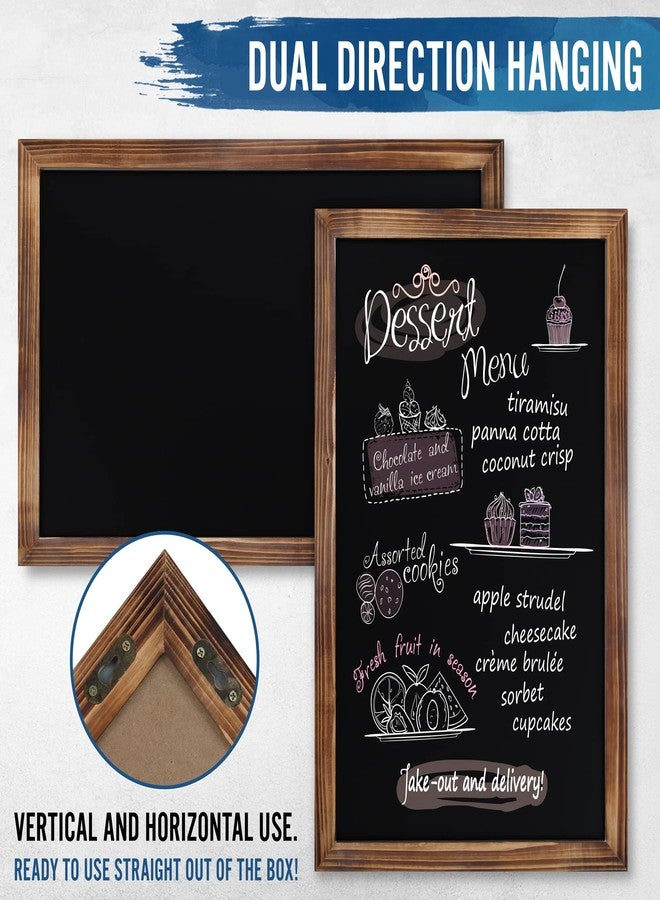 DUAL DIRECTION HANGING
Dessert
Menu
tiramisu
panna cotta
coconut crisp
Chocolate and
vanilla ice cream
Assorted
cookies
apple strudel
cheesecake
crème brulée
sorbet
cupcakes
Fresh fruit in season
Take-out and delivery!
VERTICAL AND HORIZONTAL USE.
READY TO USE STRAIGHT OUT OF THE BOX!